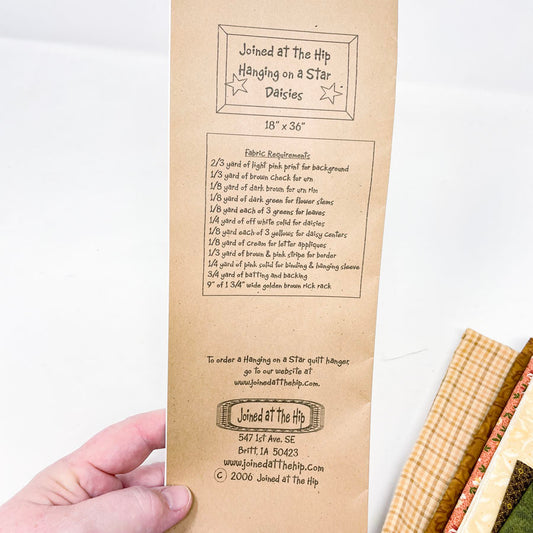 Joined at the Hip
Hanging on a Star
Daisies
18" x 36"
Fabric Requirements
2/3 yard of light pink print for background
1/3 yard of brown check for urn
1/8 yard of dark brown for urn rim
1/8 yard of dark green for flower stems
1/8 yard each of 3 greens for leaves
1/4 yard of off white solid for daisies
1/8 yard each of 3 yellows for daisy centers
1/8 yard of cream for letter appliques
1/3 yard of brown & pink stripe for border
1/4 yard of pink solid for binding & hanging sleeve
3/4 yard of batting and backing
9" of 1 3/4" wide golden brown rick rack
To order a Hanging on a Star quilt hanger,
go to our website at
www.joinedatthehip.com.
Joined at the Hip
547 1st Ave. SE
Britt, IA 50423
www.joinedatthehip.com
© 2006 Joined at the Hip